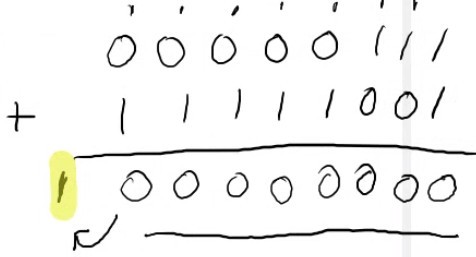 0 0 0 0 0 1 1 1
+ 1 1 1 1 1 0 0 1
1 0 0 0 0 0 0 0 0